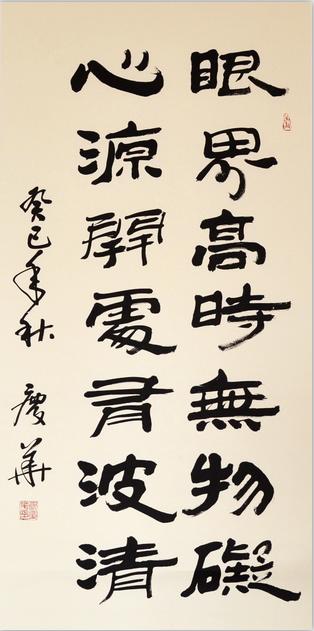 眼界高時無物礙
心源開處有波清
癸巳年秋 慶華